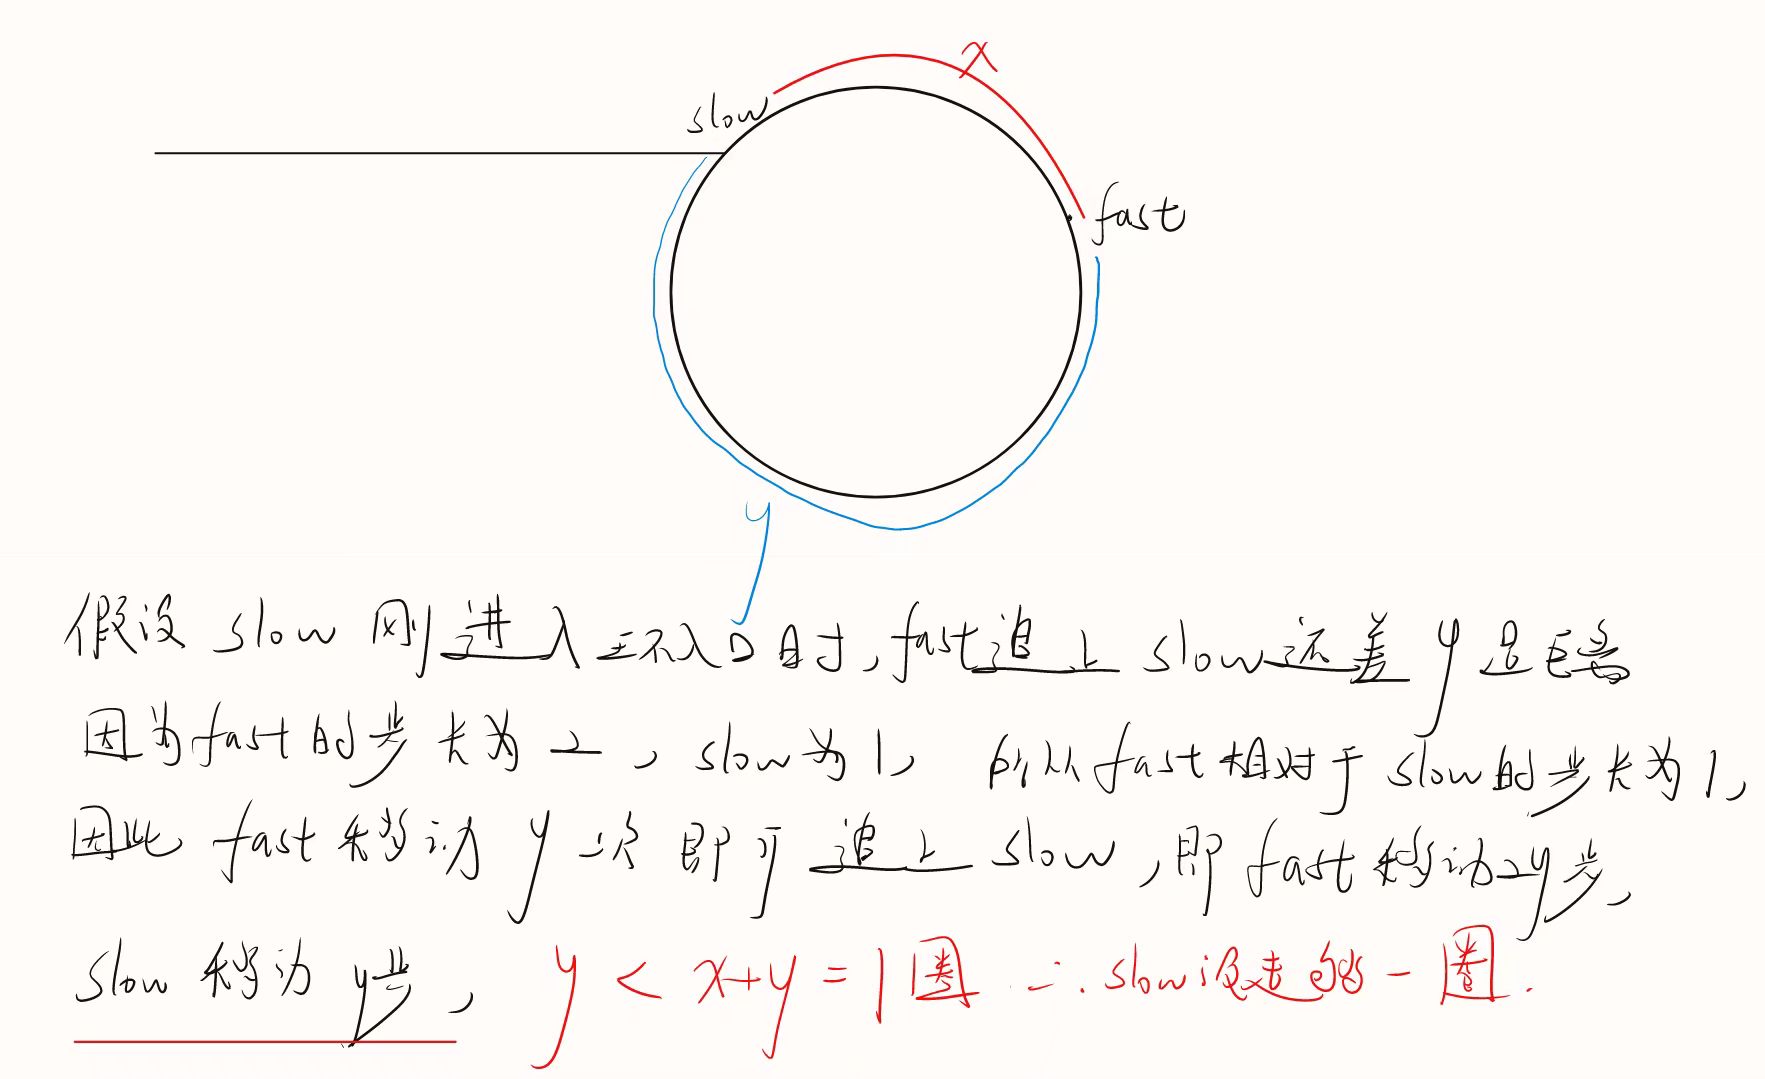 x
slow
fast
y
假设 slow 刚进入环入口时,fast追上 slow还差 y 距离
因为fast的步长为2,slow为1,所以fast相对于slow的步长为1,
因此 fast移动 y 次 即可追上 slow,即 fast 移动2y步,
slow 移动 y步, y < x+y = 1圈 ∴ slow没走够一圈.